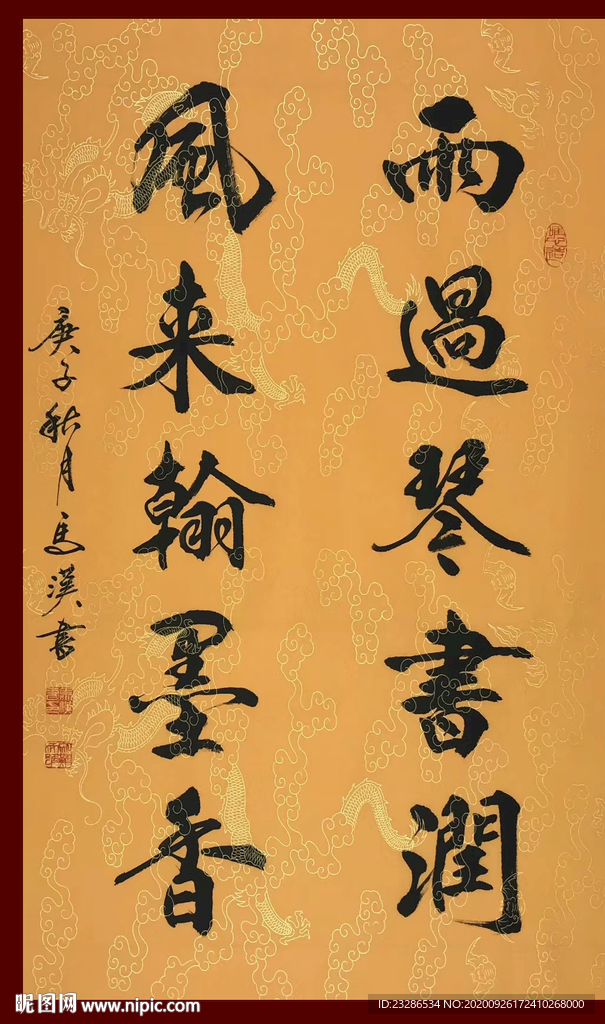 雨過琴書潤
風来翰墨香
庚子秋月馬漢書
昵图网 www.nipic.com
ID:23286534 NO:20200926172410268000